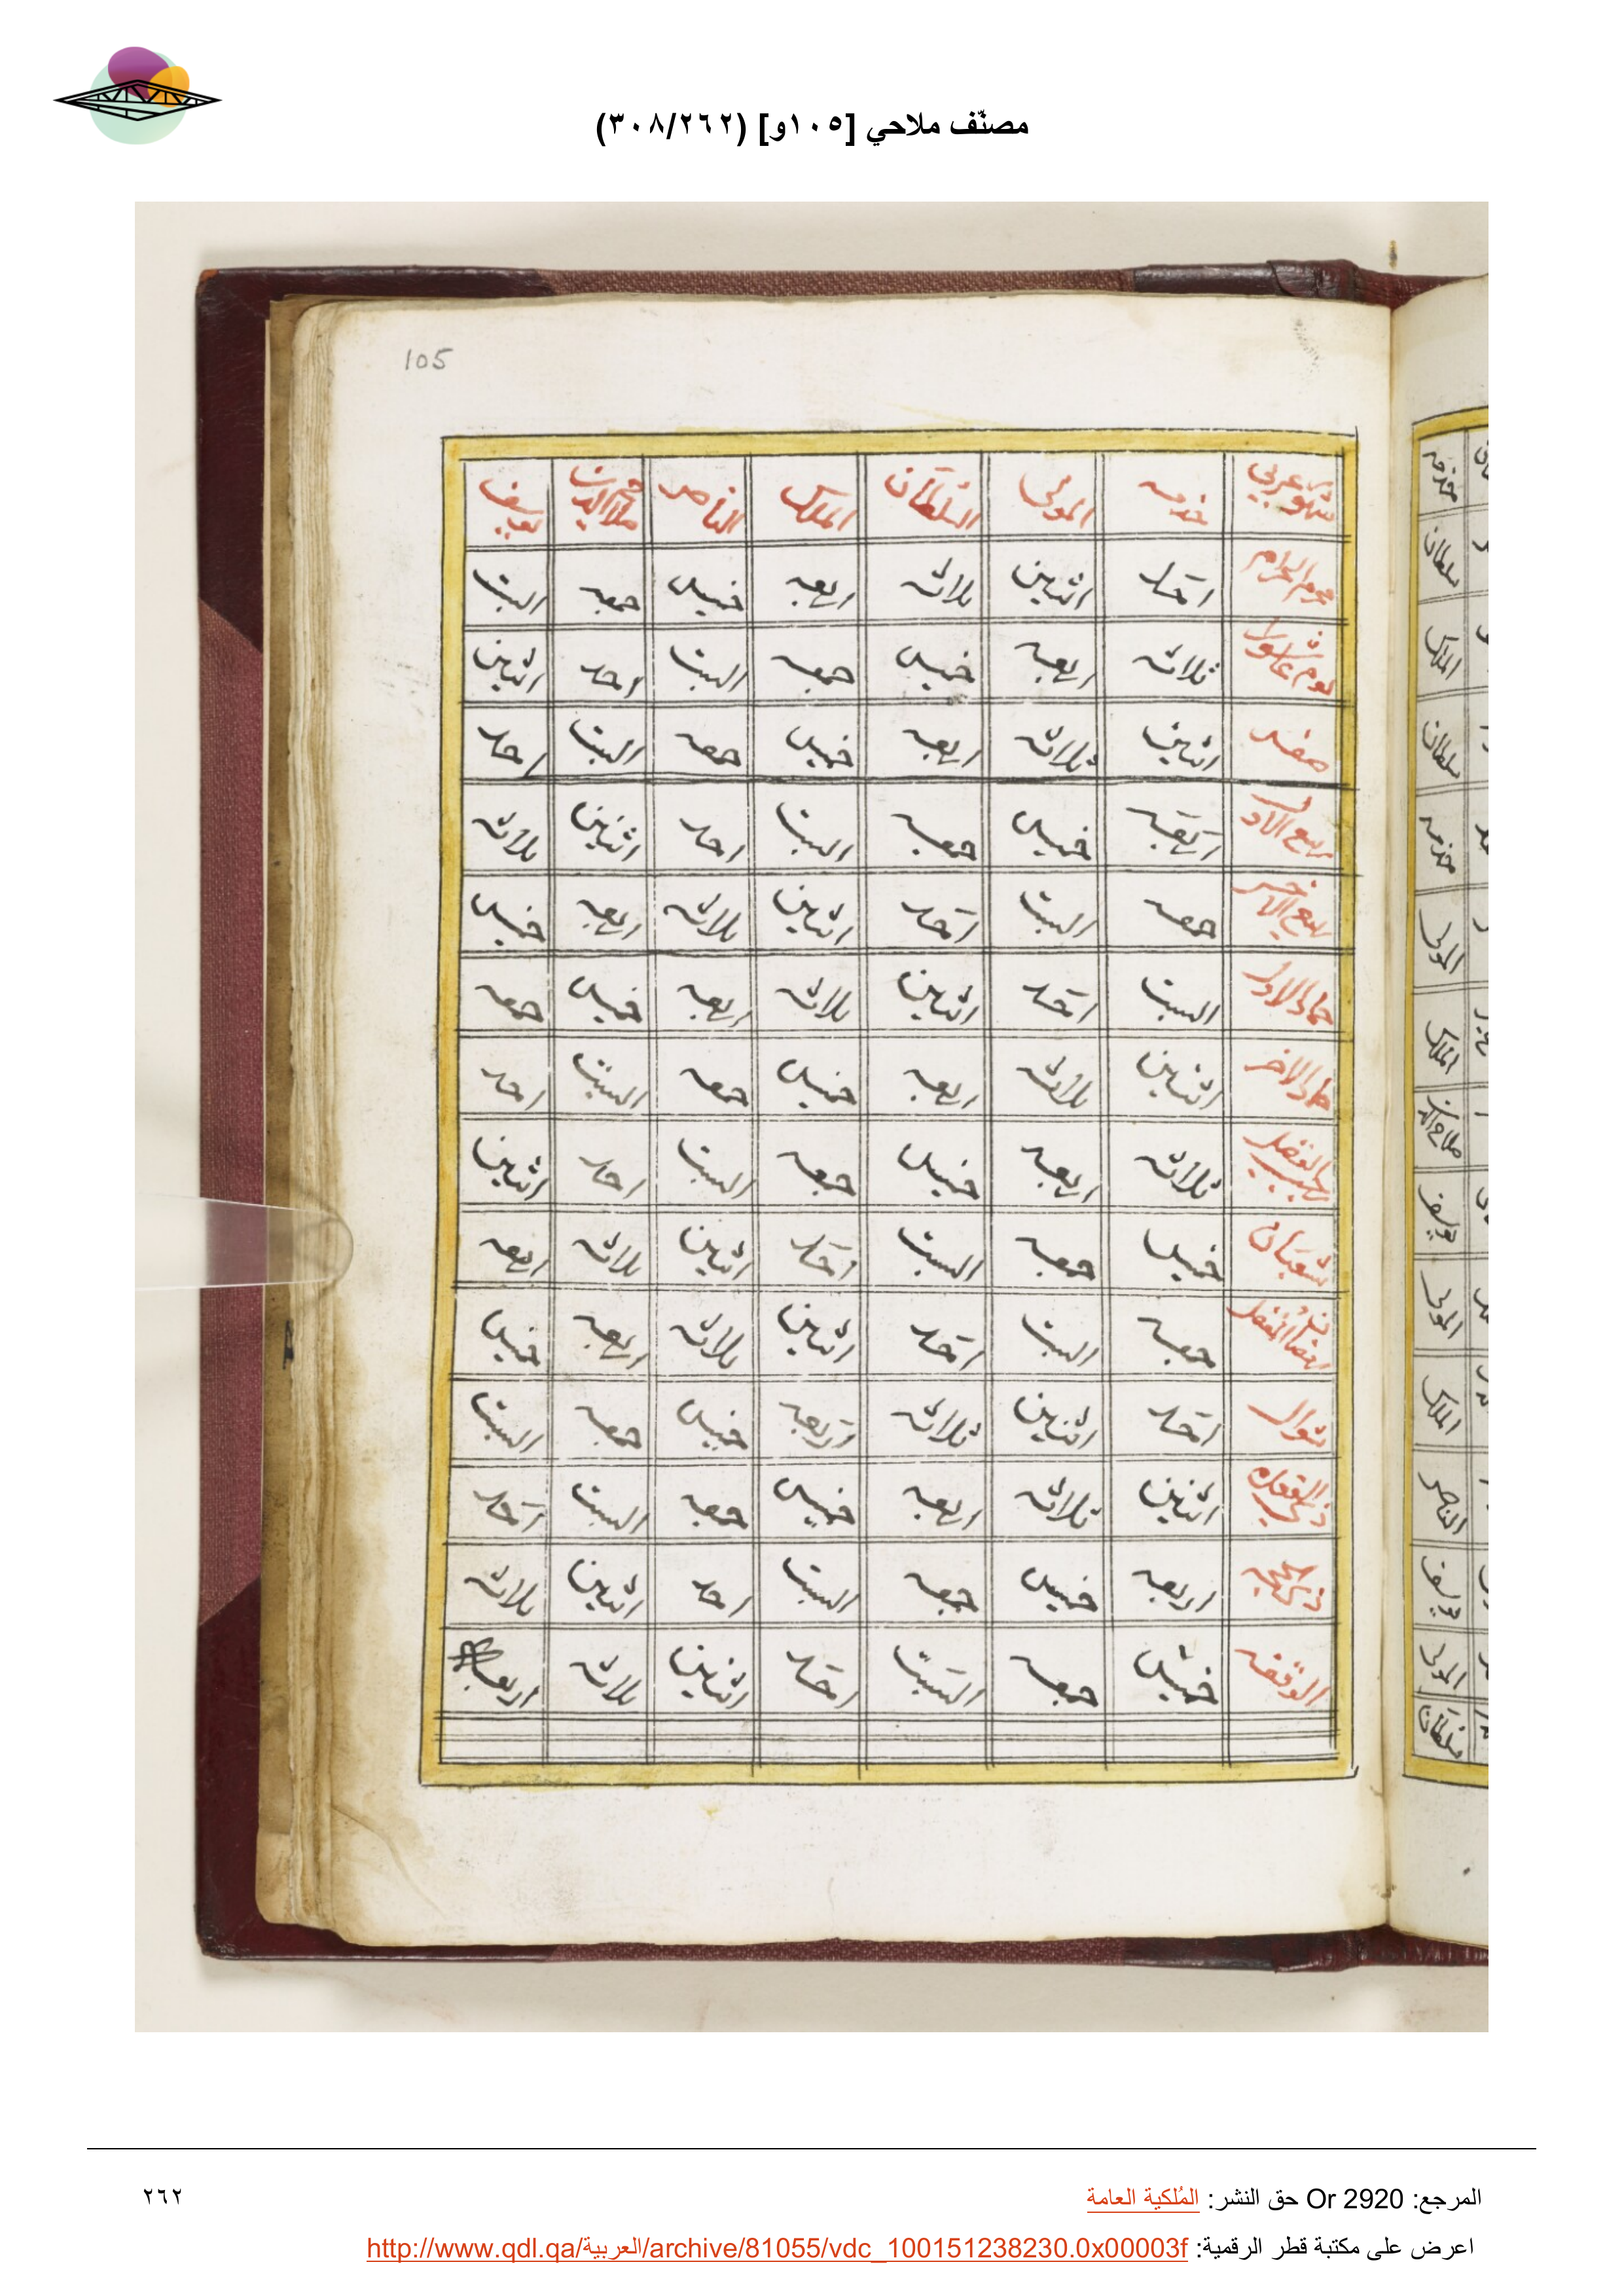 مصنّف ملاحي [١٠٥و] (٣٠٨/٢٦٢)
105
شهور عربي خدمه المولى السلطان الملك الناصر صلاح الدين يوسف
محرم الحرام احد اثنين ثلاثه اربعه خميس جمعه السبت
يوم عاشورا ثلاثه اربعه خميس جمعه السبت احد اثنين
صفر اثنين ثلاثه اربعه خميس جمعه السبت احد
ربيع الاول اربعه خميس جمعه السبت احد اثنين ثلاثه
ربيع الاخر جمعه السبت احد اثنين ثلاثه اربعه خميس
جماد الاول السبت احد اثنين ثلاثه اربعه خميس جمعه
جماد الاخر اثنين ثلاثه اربعه خميس جمعه السبت احد
رجب ثلاثه اربعه خميس جمعه السبت احد اثنين
شعبان خميس جمعه السبت احد اثنين ثلاثه اربعه
رمضان جمعه السبت احد اثنين ثلاثه اربعه خميس
شوال احد اثنين ثلاثه اربعه خميس جمعه السبت
ذي القعده اثنين ثلاثه اربعه خميس جمعه السبت احد
ذي الحجه اربعه خميس جمعه السبت احد اثنين ثلاثه
الوقفه خميس جمعه السبت احد اثنين ثلاثه اربعه
خدمه
سلطان
الملك
سلطان
خدمه
المولى
الملك
صلاح الدين
يوسف
المولى
الملك
الناصر
يوسف
المولى
سلطان
المرجع: Or 2920 حق النشر: المُلكية العامة
٢٦٢
اعرض على مكتبة قطر الرقمية: http://www.qdl.qa/العربية/archive/81055/vdc_100151238230.0x00003f